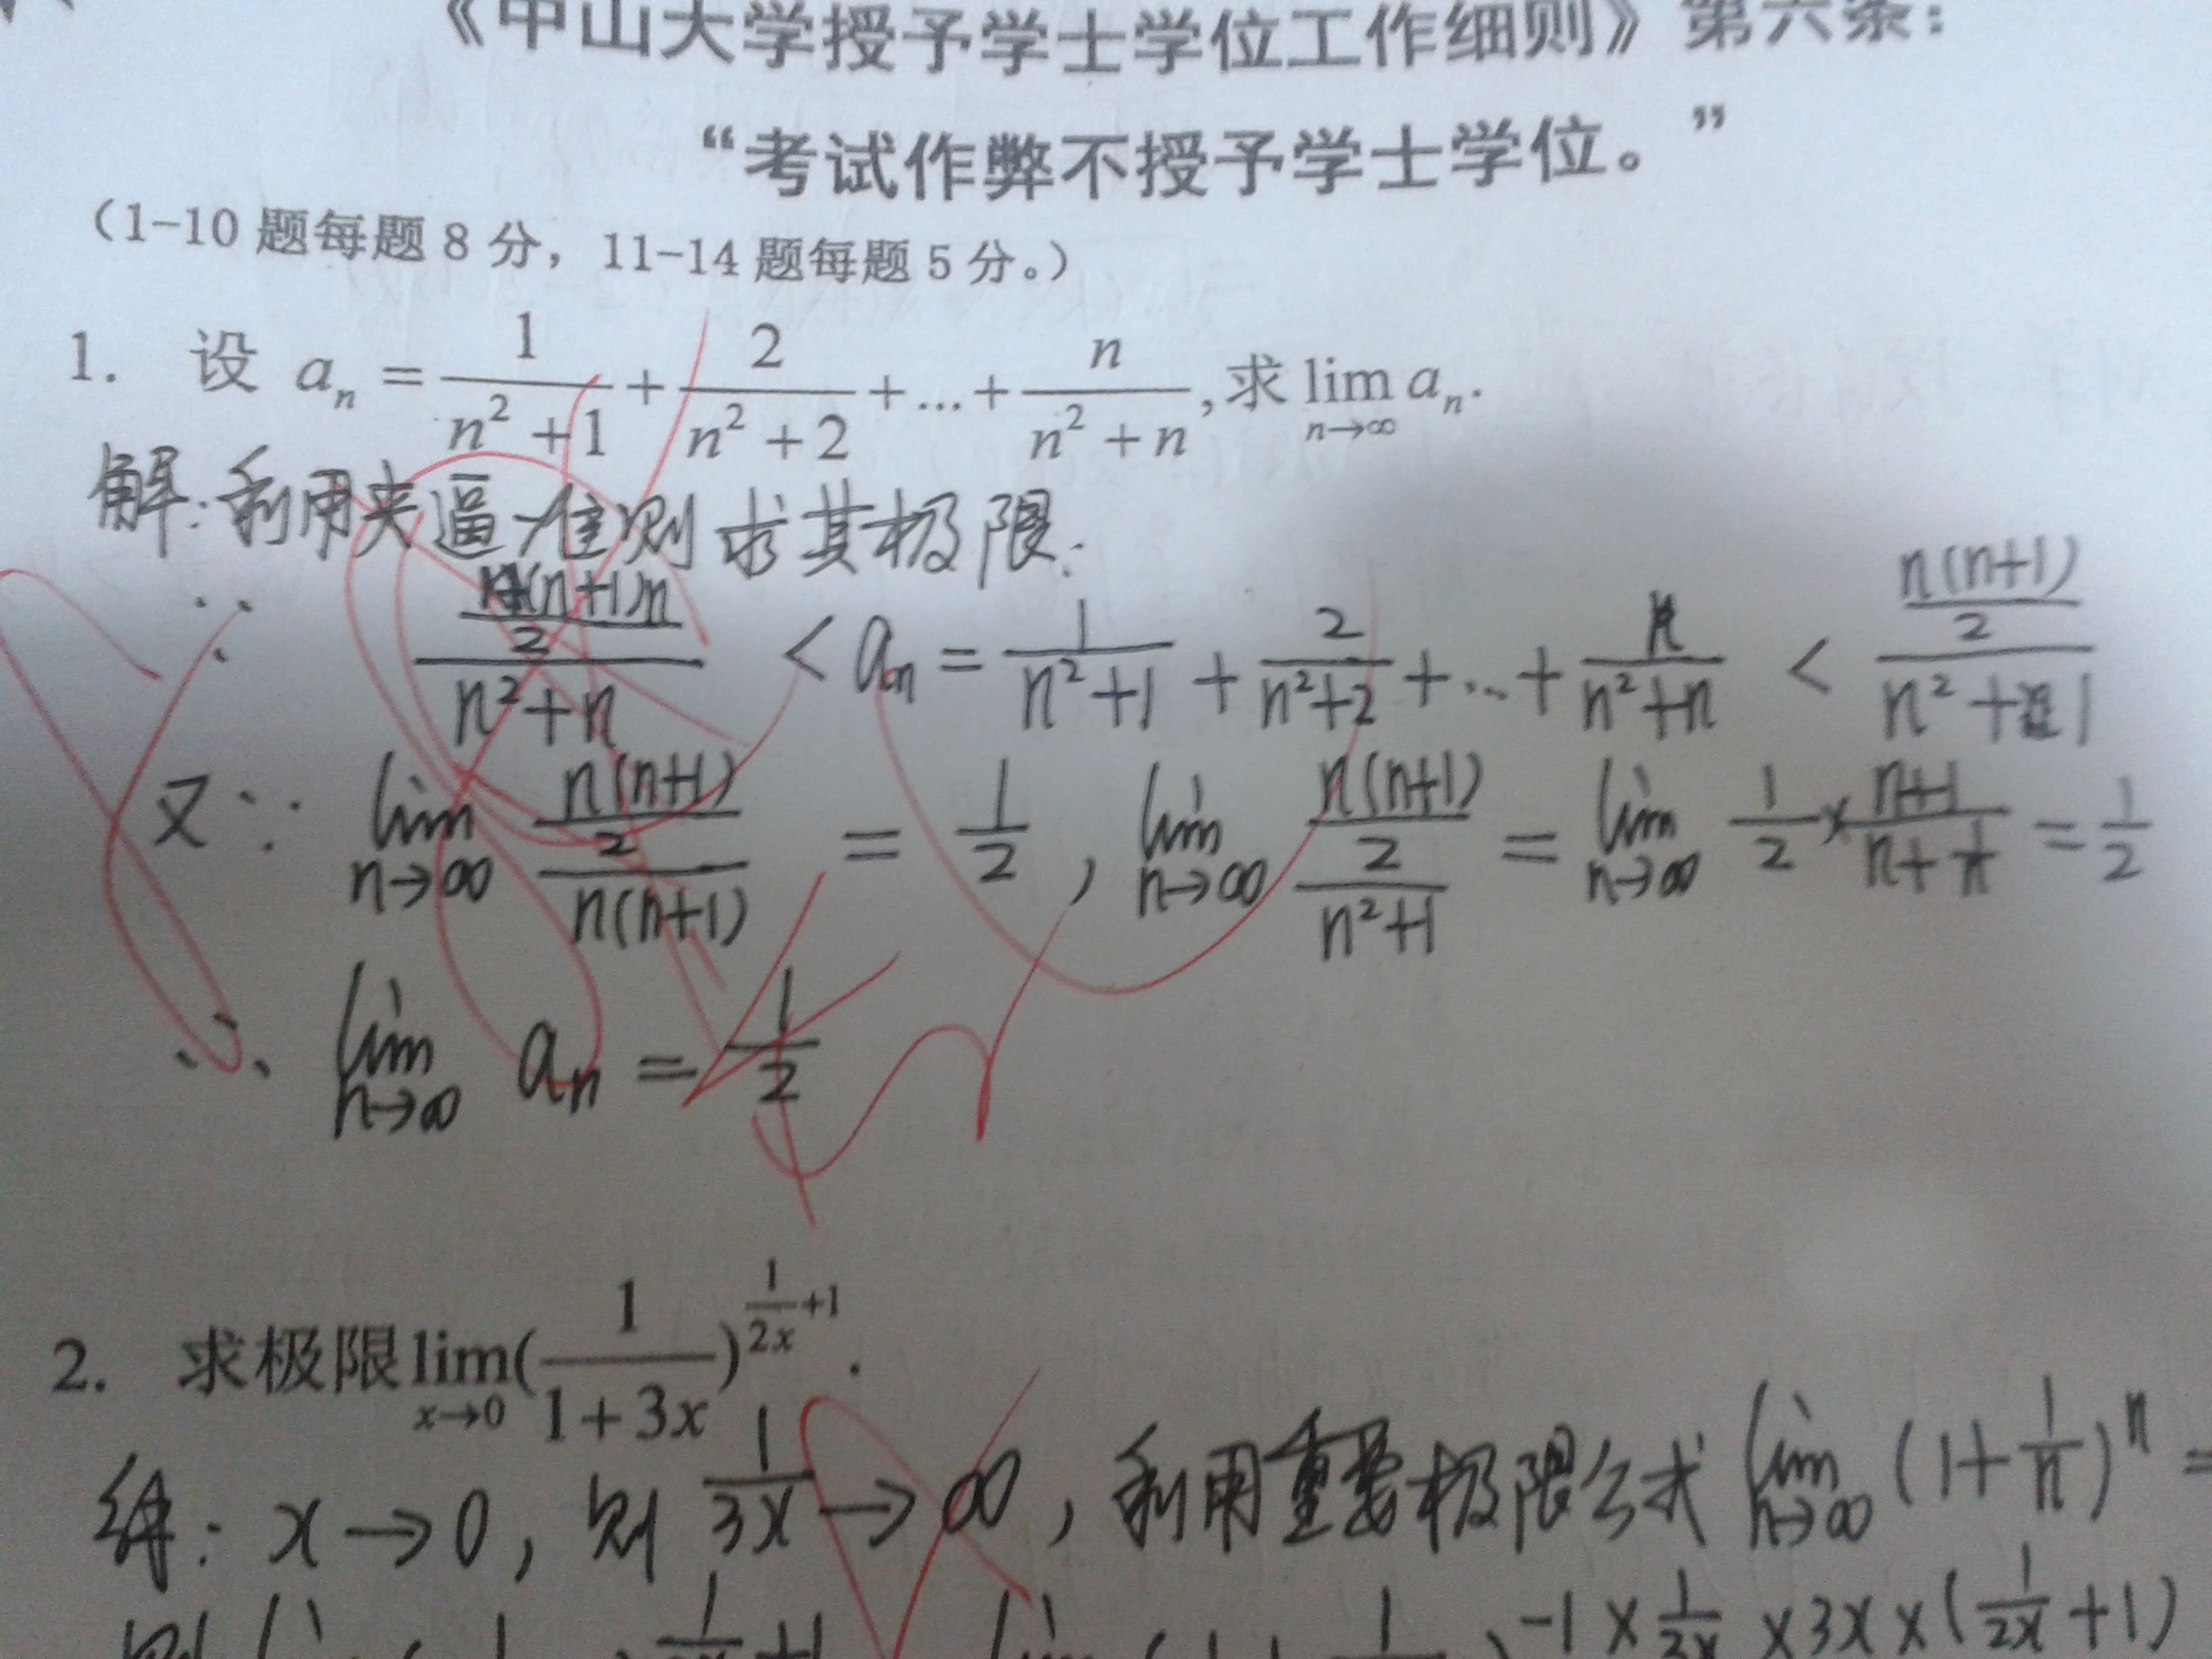 《中山大学授予学士学位工作细则》第六条：
“考试作弊不授予学士学位。”
（1-10 题每题 8 分，11-14 题每题 5 分。）
1. 设 aₙ = 1/(n²+1) + 2/(n²+2) + ... + n/(n²+n), 求 lim n→∞ aₙ.
解：利用夹逼准则求其极限：
∵ (n(n+1)/2)/(n²+n) < aₙ = 1/(n²+1) + 2/(n²+2) + ... + n/(n²+n) < (n(n+1)/2)/(n²+1)
又∵ lim n→∞ (n(n+1)/2)/(n(n+1)) = 1/2 , lim n→∞ (n(n+1)/2)/(n²+1) = lim n→∞ 1/2 × (n+1)/(n+1/n) = 1/2
∴ lim n→∞ aₙ = 1/2
2. 求极限 lim x→0 (1/(1+3x))^(1/(2x)+1) .
解：x→0, 则 1/(3x) →∞, 利用重要极限公式 lim n→∞ (1+1/n)^n =
-1 × 1/(3x) × 3x × (1/(2x) + 1)